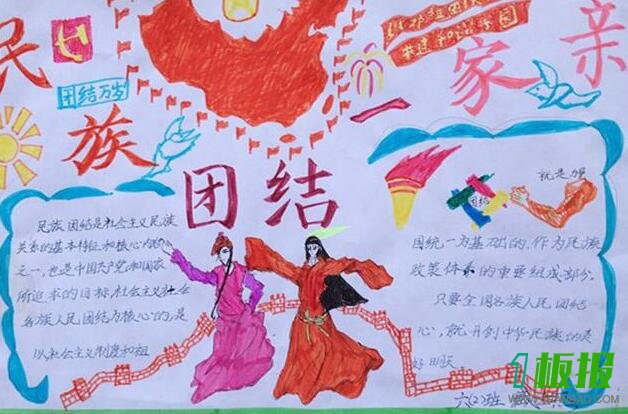 民
族
团结
一家亲
团结万岁
共建和谐家园
民族团结是社会主义民族
关系的基本特征和核心内容
之一,也是中国共产党和国家
所追求的目标.社会主义社会
各族人民团结为核心的是
以社会主义制度和祖
团结
就是
国统一为基础的,作为民族
政策体系的重要组成部分.
只要全国各族人民团结
心,就开创中华民族的
好明天
六(2)班
1板报
WWW.1BANBAO.COM